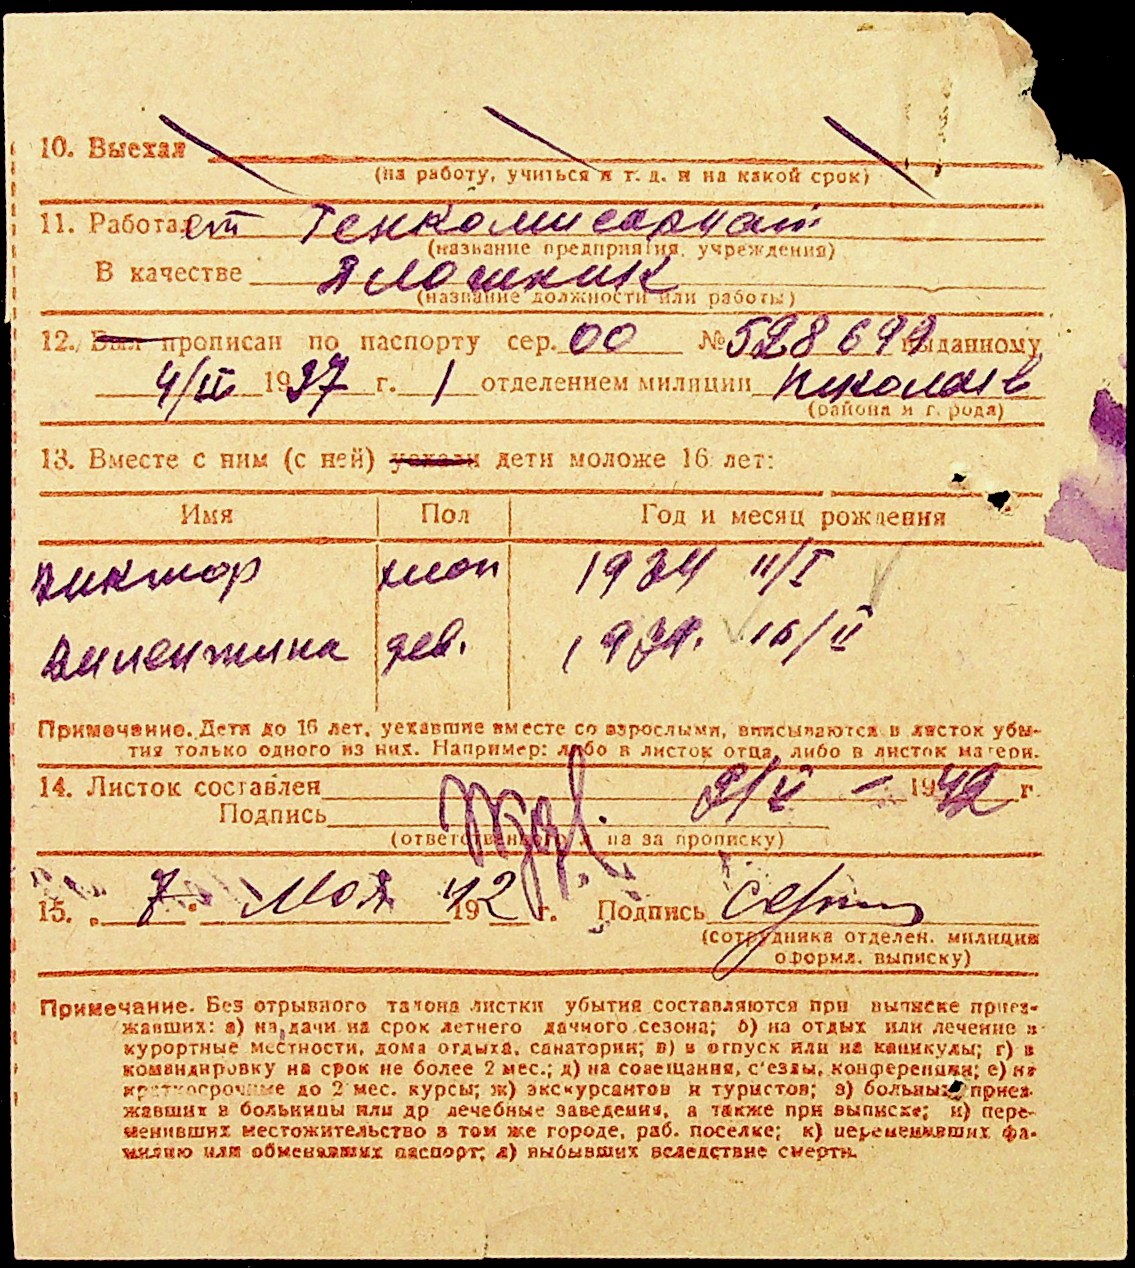 10. Выехал
(на работу, учиться и т. д. и на какой срок)
11. Работает Генкомисариат
(название предприятия, учреждения)
В качестве Плотник
(название должности или работы)
12. Был прописан по паспорту сер. 00 № 528699 выданному
4/III 1937 г. 1 отделением милиции Николаев
(района и города)
13. Вместе с ним (с ней) уехали дети моложе 16 лет:
Имя Пол Год и месяц рождения
Виктор 1934 11/I
Валентина дев. 1939. 16/II
Примечание. Дети до 16 лет, уехавшие вместе со взрослыми, вписываются в листок убы-
тия только одного из них. Например: либо в листок отца, либо в листок матери.
14. Листок составлен 9/V - 1942 г.
Подпись
(ответственного лица за прописку)
15. „ 7 " мая 1942 г. Подпись
(сотрудника отделен. милиции
оформл. выписку)
Примечание. Без отрывного талона листки убытия составляются при выписке приез-
жавших: а) на дачи на срок летнего дачного сезона; б) на отдых или лечение в
курортные местности, дома отдыха, санатории; в) в отпуск или на каникулы; г) в
командировку на срок не более 2 мес.; д) на совещания, с'езды, конференции; е) на
краткосрочные до 2 мес. курсы; ж) экскурсантов и туристов; з) больных приез-
жавших в больницы или др лечебные заведения, а также при выписке; и) пере-
менивших местожительство в том же городе, раб. поселке; к) переменивших фа-
милию или обменявших паспорт; л) выбывших вследствие смерти.